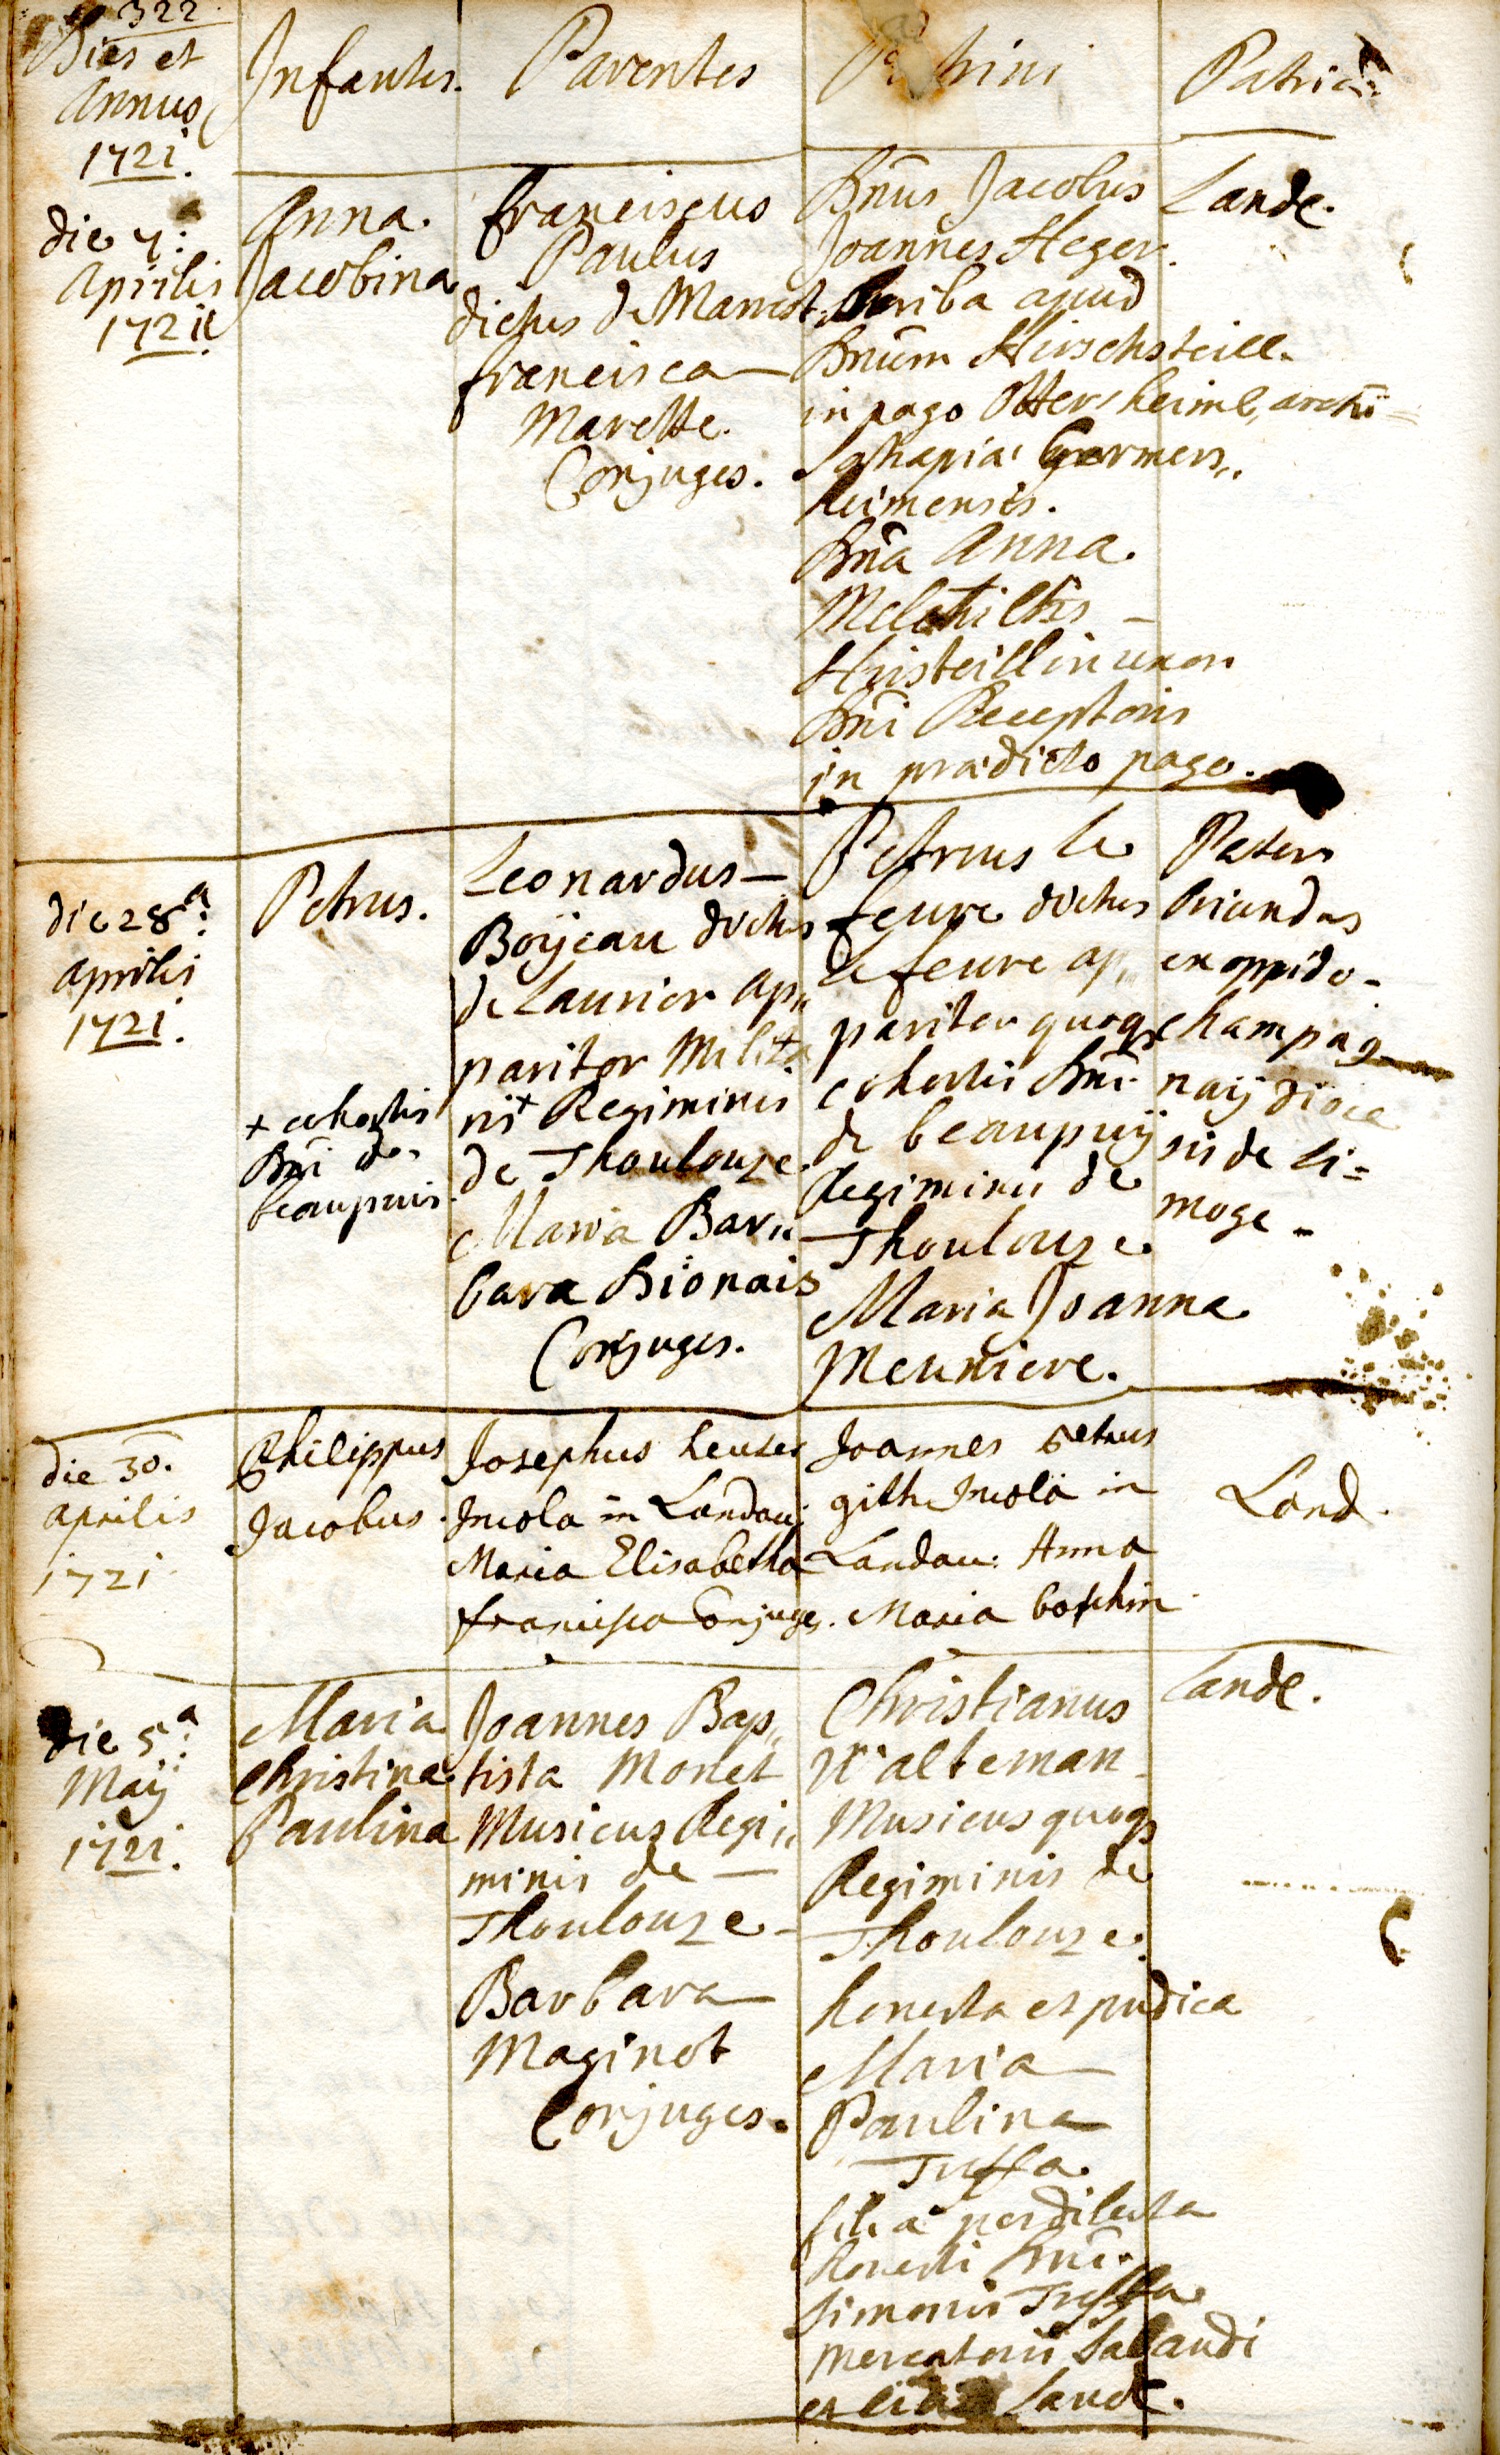 322
Dies et
Annus
1721.
Infantes.
Parentes
Patrini
Patria.
die 7.a
Aprilis
1721.
Anna.
Jacobina
franciscus
Paulus
dictus de Marest.
francisca
Marette.
Conjuges.
Dnus Jacobus
Joannes Heger.
scriba apud
Dnum Hirschsteill
in pago Ottersheim, archi=
Germers,,
heimensis.
Dna Anna.
uxor
Dni Receptoris
in praedicto pago.
Landè.
die 28.a
aprilis
1721.
Petrus.
+ cohortis
Dni de
beaupuis.
Leonardus
Boÿeau dictus
de Laurier ap,,
paritor Milita
ris + Regiminis
de Thoulouze
Maria Bar,,
bara Dionais
Conjuges.
Petrus le
feure dictus
le feure ap,,
paritor quoqe
cohortis Dni
de beaupuÿ
Regiminis de
Thoulouze.
Maria Joanna
Meuniere.
Pater
oriundus
ex oppido
champag
naÿ dioce
sis de li=
moge
die 30.
aprilis
1721.
Philippus
Jacobus.
Josephus heuser
Incola in Landau:
Maria Elisabetha
francisca Conjuges.
Joannes petrus
gith Incola in
Landau: Anna
Maria boschin
Land.
die 5.a
Maÿ
1721.
Maria
Christina
Paulina
Joannes Bap,,
tista Monet
Musicus Regi,,
minis de
Thoulouze
Barbara
Maginot
Conjuges.
Christianus
Walteman
Musicus quoqe
Regiminis de
Thoulouze.
honesta et pudica
Maria
Paulina
Treffa.
filia perdilecta
honesti Dni
Simonis Treffa
mercatoris Sabaudi
Landè.
Landè.